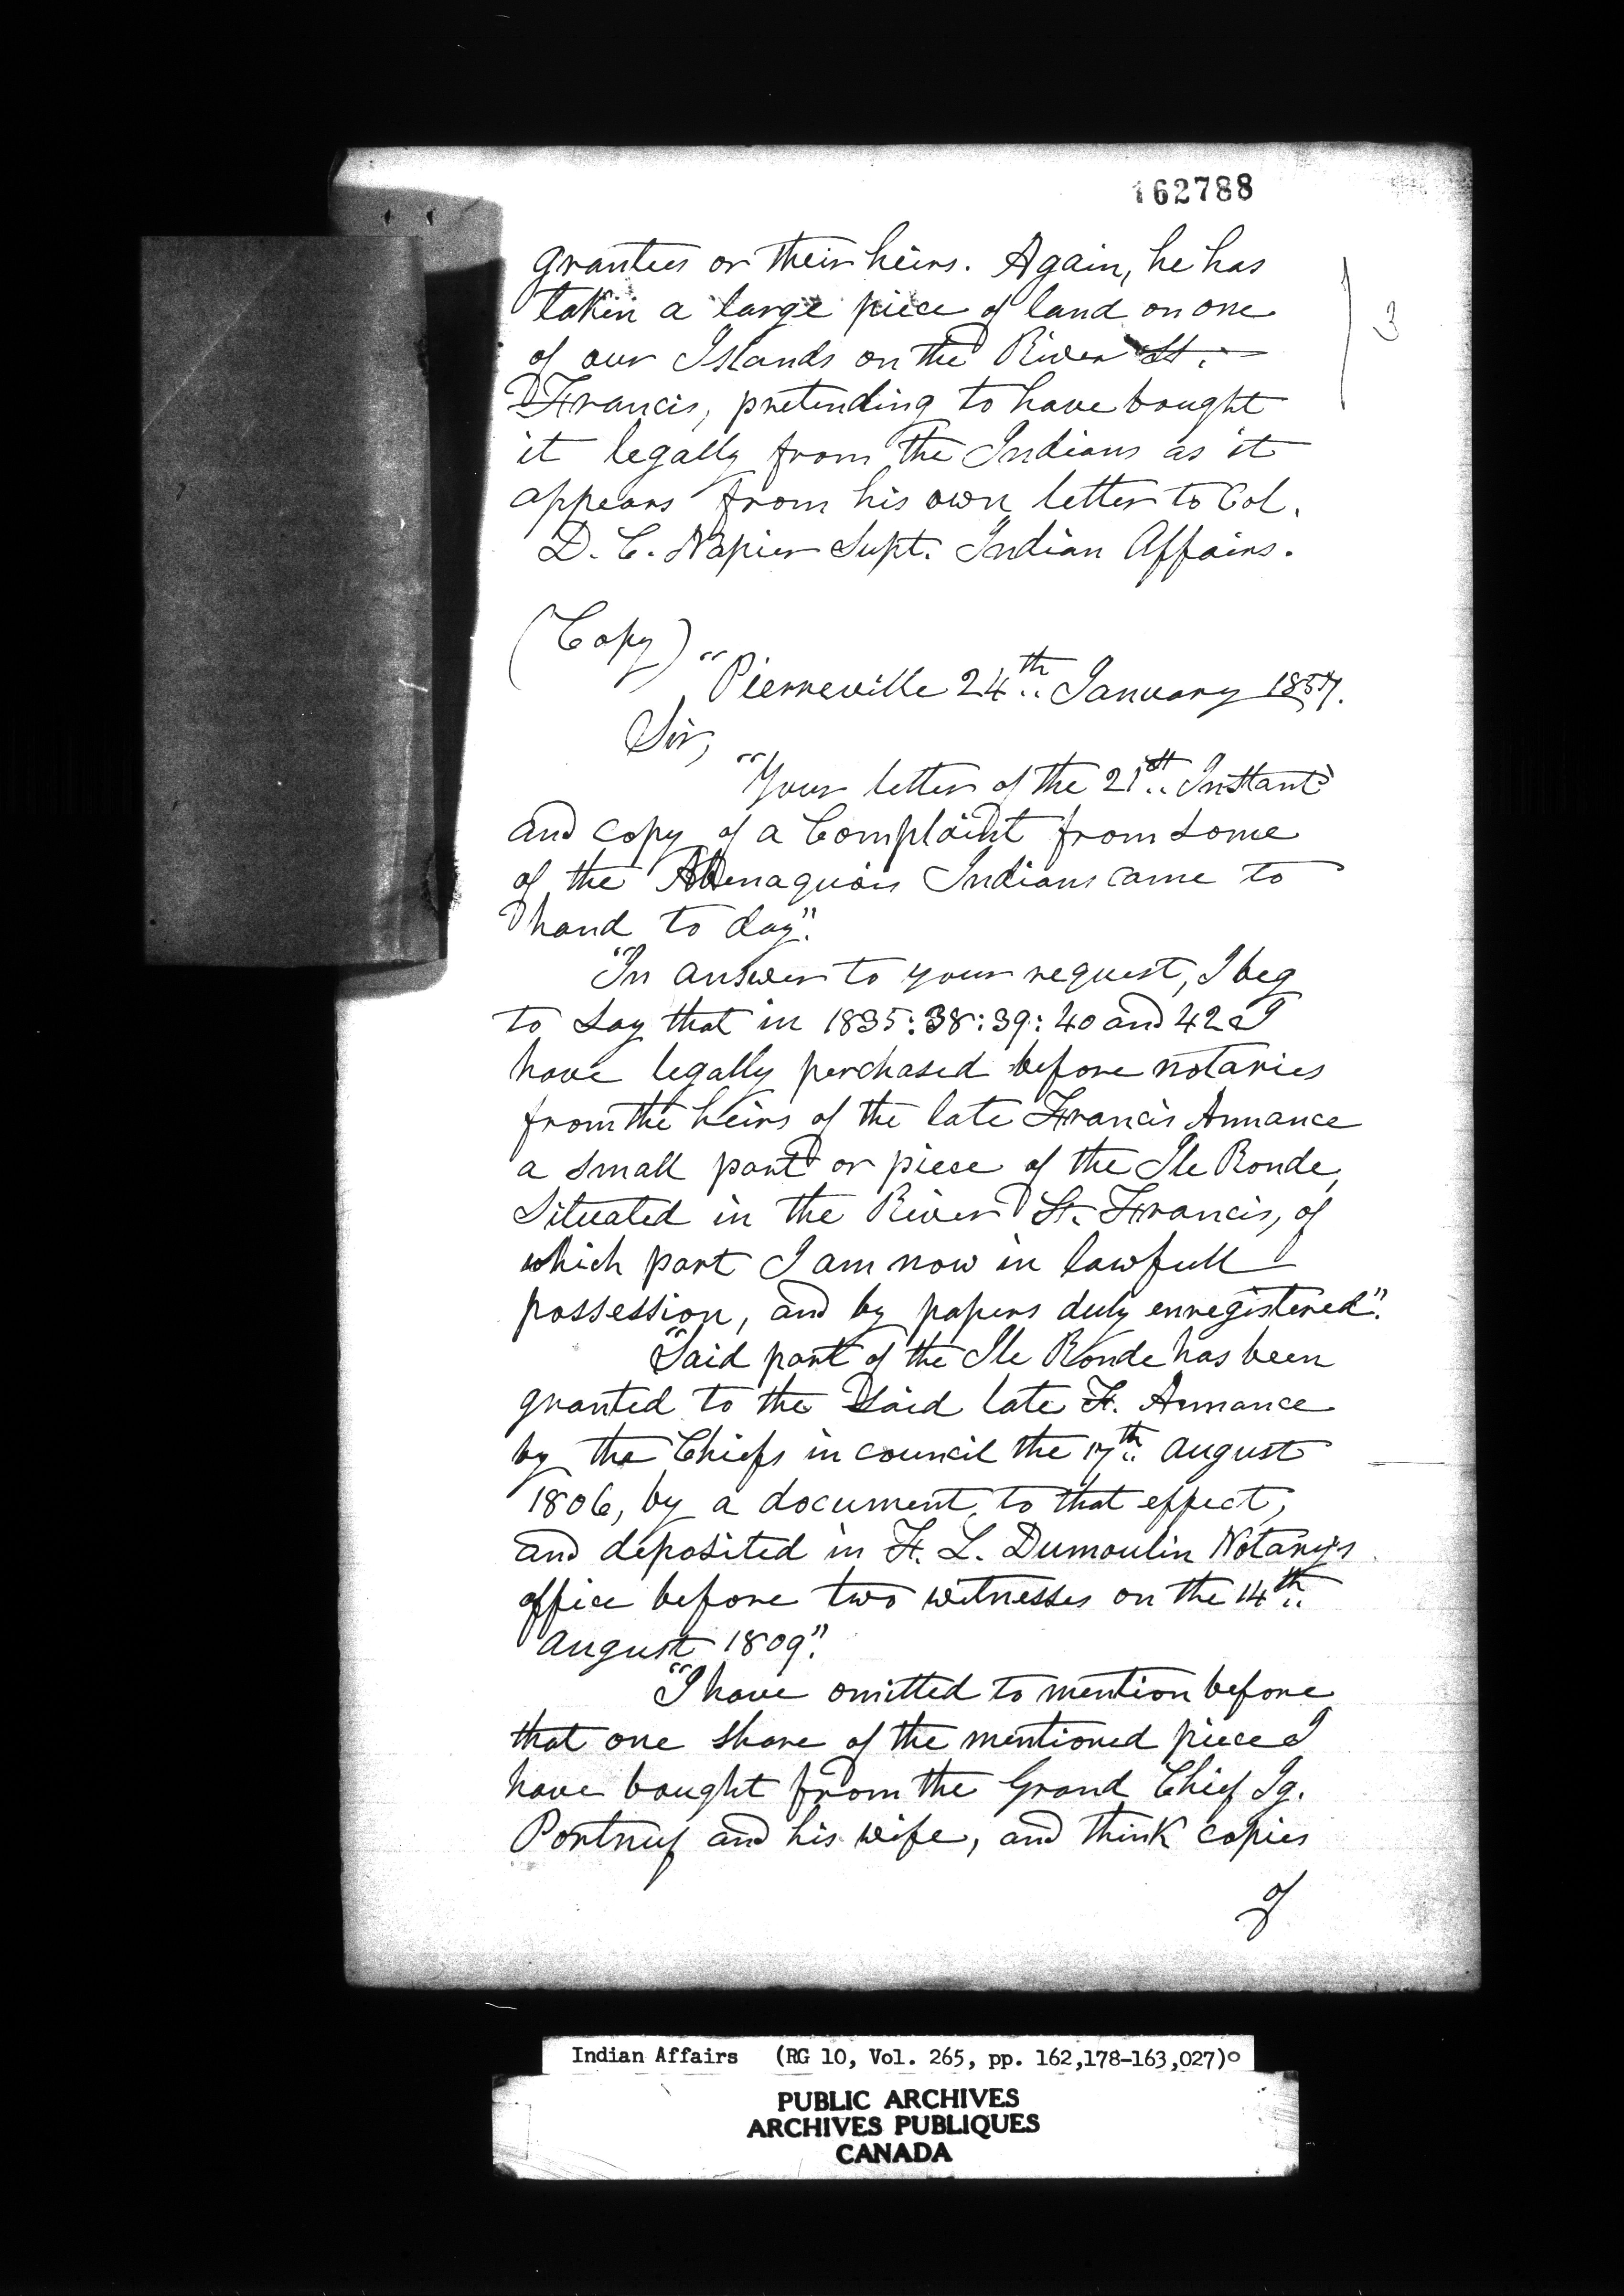 162788
grantees or their heirs. Again, he has
taken a large piece of land on one
of our Islands on the River St.
Francis, pretending to have bought
it legally from the Indians as it
appears from his own letter to Col.
D. C. Napier Supt. Indian Affairs.
3
(Copy)
"Pierreville 24th January 1857.
Sir,
"Your letter of the 21st Instant
and copy of a Complaint from some
of the Abenaquois Indians came to
hand to day".
"In answer to your request, I beg
to say that in 1835:38:39:40 and 42 I
have legally perchased before notaries
from the heirs of the late Francis Annance
a small part or piece of the Ile Ronde,
Situated in the River St. Francis, of
which part I am now in lawfull
possession, and by papers duly enregistered".
"Said part of the Ile Ronde has been
granted to the said late F. Annance
by the Chiefs in council the 17th August
1806, by a document, to that effect,
and deposited in F. L. Dumoulin Notary's
office before two witnesses on the 14th
August 1809".
"I have omitted to mention before
that one share of the mentioned piece I
have bought from the Grand Chief Ig.
Portnuf and his wife, and think copies
of
Indian Affairs (RG 10, Vol. 265, pp. 162,178-163,027)
PUBLIC ARCHIVES
ARCHIVES PUBLIQUES
CANADA